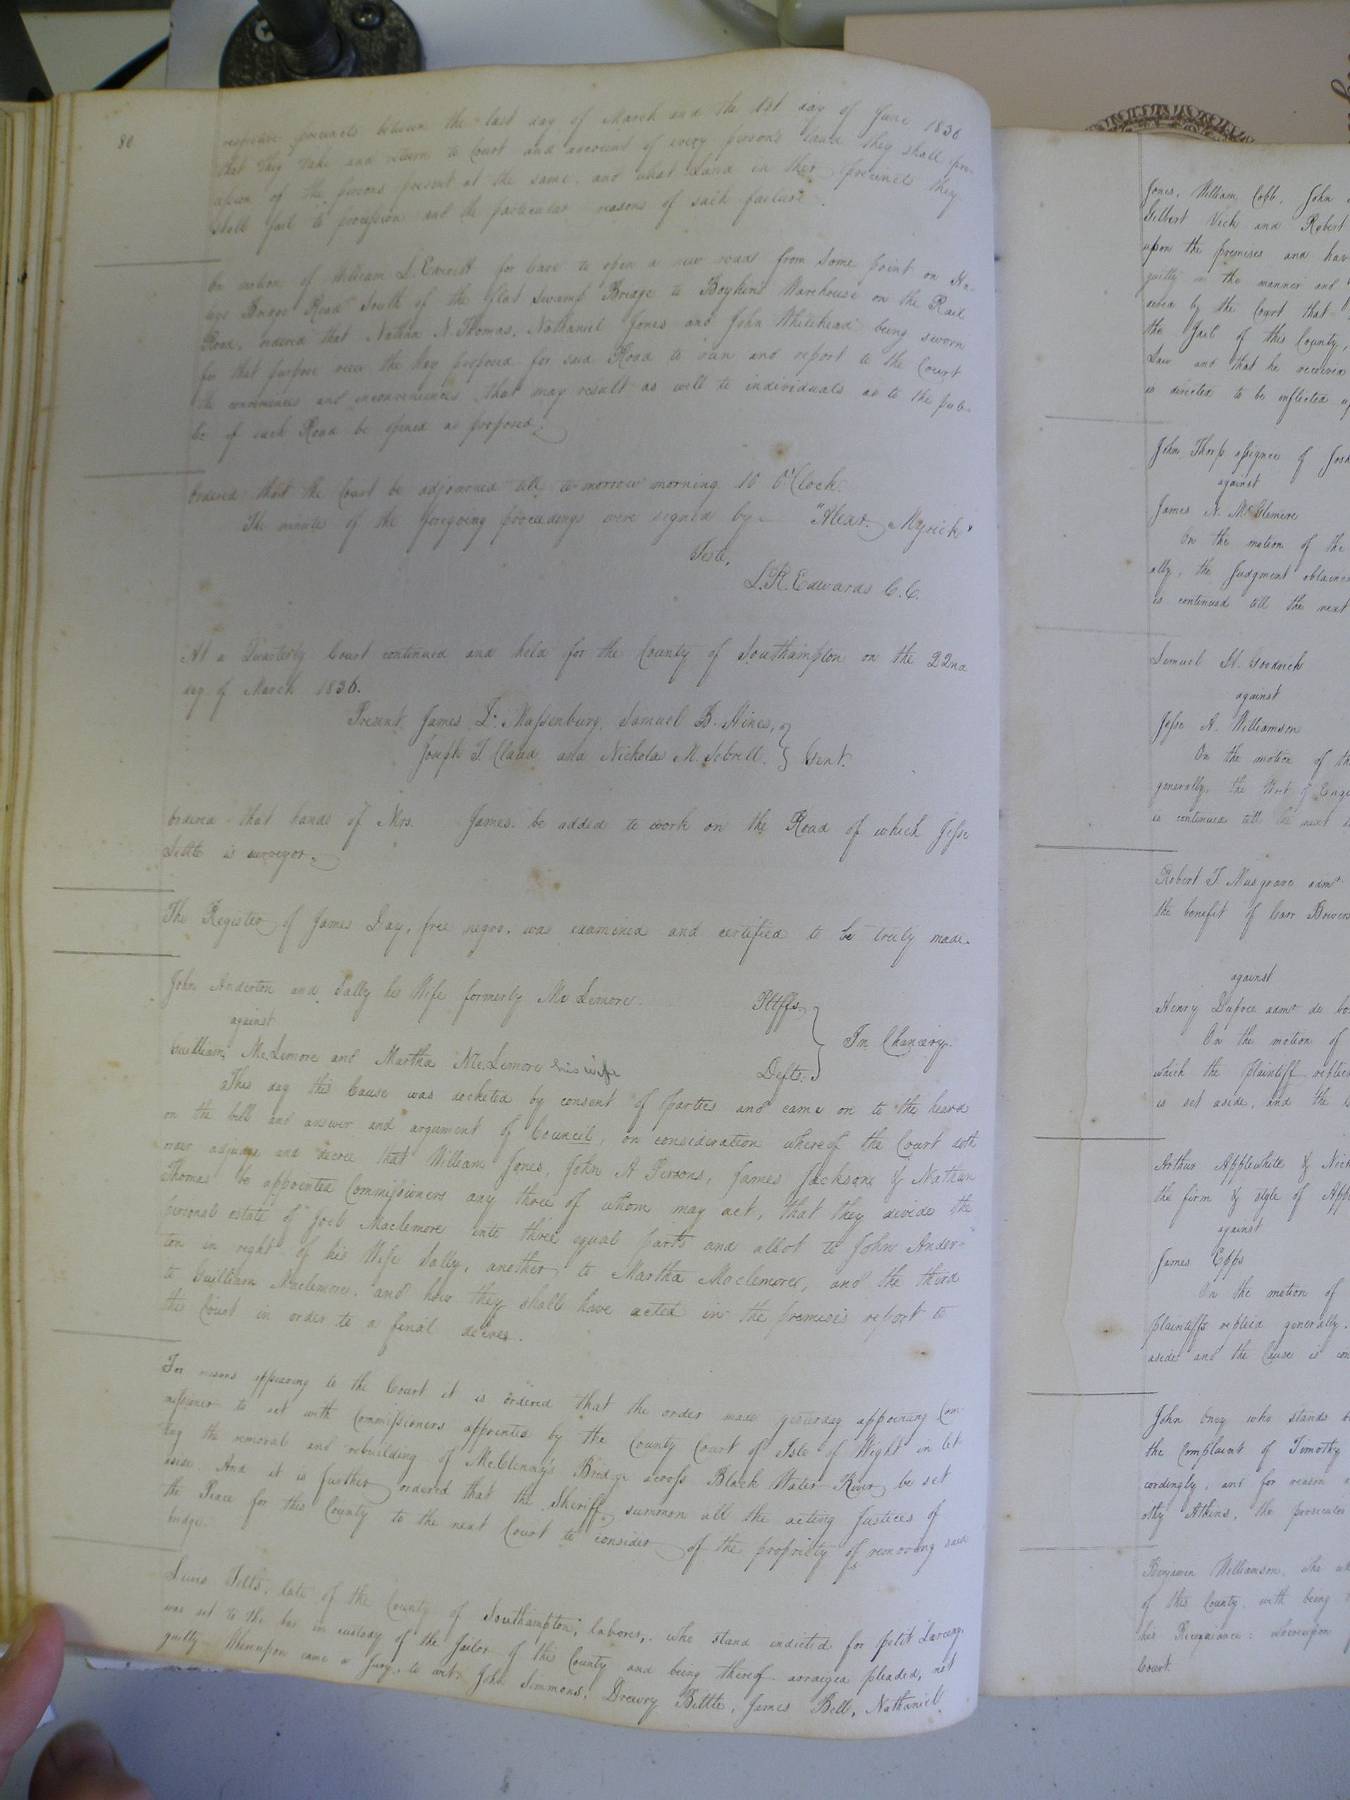 80
respective precincts between the last day of March and the 1st day of June 1836
that they take and return to Court and account of every persons land they shall pro-
cession of the persons present at the same, and what Land in their precincts they
shall fail to procession and the particular reasons of such failure.
On motion of William L. Everitt for leave to open a new road from some point on
Bridge Road South of the flat Swamp Bridge to Boykins Warehouse on the Rail
Road, ordered that Nathan N. Thomas, Nathaniel Jones and John Whitehead being sworn
for that purpose view the way proposed for said Road to run and report to the Court
the conveniences and inconveniences that may result as well to individuals as to the pub-
lic if such Road be opened as proposed.
Ordered that the Court be adjourned till to-morrow morning 10 O'Clock.
The minutes of the foregoing proceedings were signed by "Alexr. Myrick"
Teste,
L.R. Edwards C.C.
At a Quarterly Court continued and held for the County of Southampton on the 22nd
day of March 1836.
Present, James D. Massenburg, Samuel B. Hines,
Joseph T. Claud and Nicholas M. Sebrell, Gent.
Ordered that hands of Mrs. James be added to work on the Road of which Jesse
Little is surveyor.
The Register of James Day, free negro, was examined and certified to be truly made.
John Anderton and Sally his Wife formerly Mc Lemore Pltffs.
against In Chancery.
Guilliam Mc.Lemore and Martha Mc.Lemore his wife Defts.
This day this Cause was docketed by consent of parties and came on to the heard
on the bill and answer and argument of Council, on consideration whereof the Court doth
order adjudge and decree that William Jones, John A Persons, James Jackson & Nathan
Thomas be appointed Commissioners any three of whom may act, that they divide the
personal estate of Joel Maclemore into three equal parts and allot to John Ander-
ton in right of his Wife Sally, another to Martha Maclemore, and the third
to Guilliam Maclemore, and how they shall have acted in the premises report to
the Court in order to a final decree.
For reasons appearing to the Court it is ordered that the order made yesterday appointing Com-
missioner to act with Commissioners appointed by the County Court of Isle of Wight in let
ting the removal and rebuilding of McClenny's Bridge across Black Water River be set
aside. And it is further ordered that the Sheriff summon all the acting Justices of
the Peace for this County to the next Court to consider of the propriety of removing said
bridge.
Lewis Felts, late of the County of Southampton, laborer, who stand indicted for petit Larceny
was set to the bar in custody of the Jailor of this County and being thereof arraigned pleaded, not
guilty Whereupon came a Jury, to wit, John Simmons, Drewry Bittle, James Bell, Nathaniel
Jones, William Cobb, John
Gilbert Vick and Robert
upon the premises and hav
guilty in the manner and
dered by the Court that
the Jail of this County,
Law and that he received
is directed to be inflicted
John Thorp assignee of
against
James N. McLemore
On the motion of the
ally, the Judgment obtained
is continued till the next
Lemuel H. Goodrich
against
Jesse A. Williamson
On the motion of th
generally, the Writ of Enqu
is continued till the next
Robert T. Musgrave admr
the benefit of Carr Bowers
against
Henry Dupree admr de bo
On the motion of
which the plaintiff replied
is set aside, and the
Arthur Applewhite & Nich
the firm & style of App
against
James Epps
On the motion of
plaintiffs replied generally.
aside and the Cause is con
John who stands
the complaint of Timothy
cordingly, and for reason
othy Atkins, the prosecutor
Benjamin Williamson, who
of this County with being
his Recognizance: whereupon
Court.